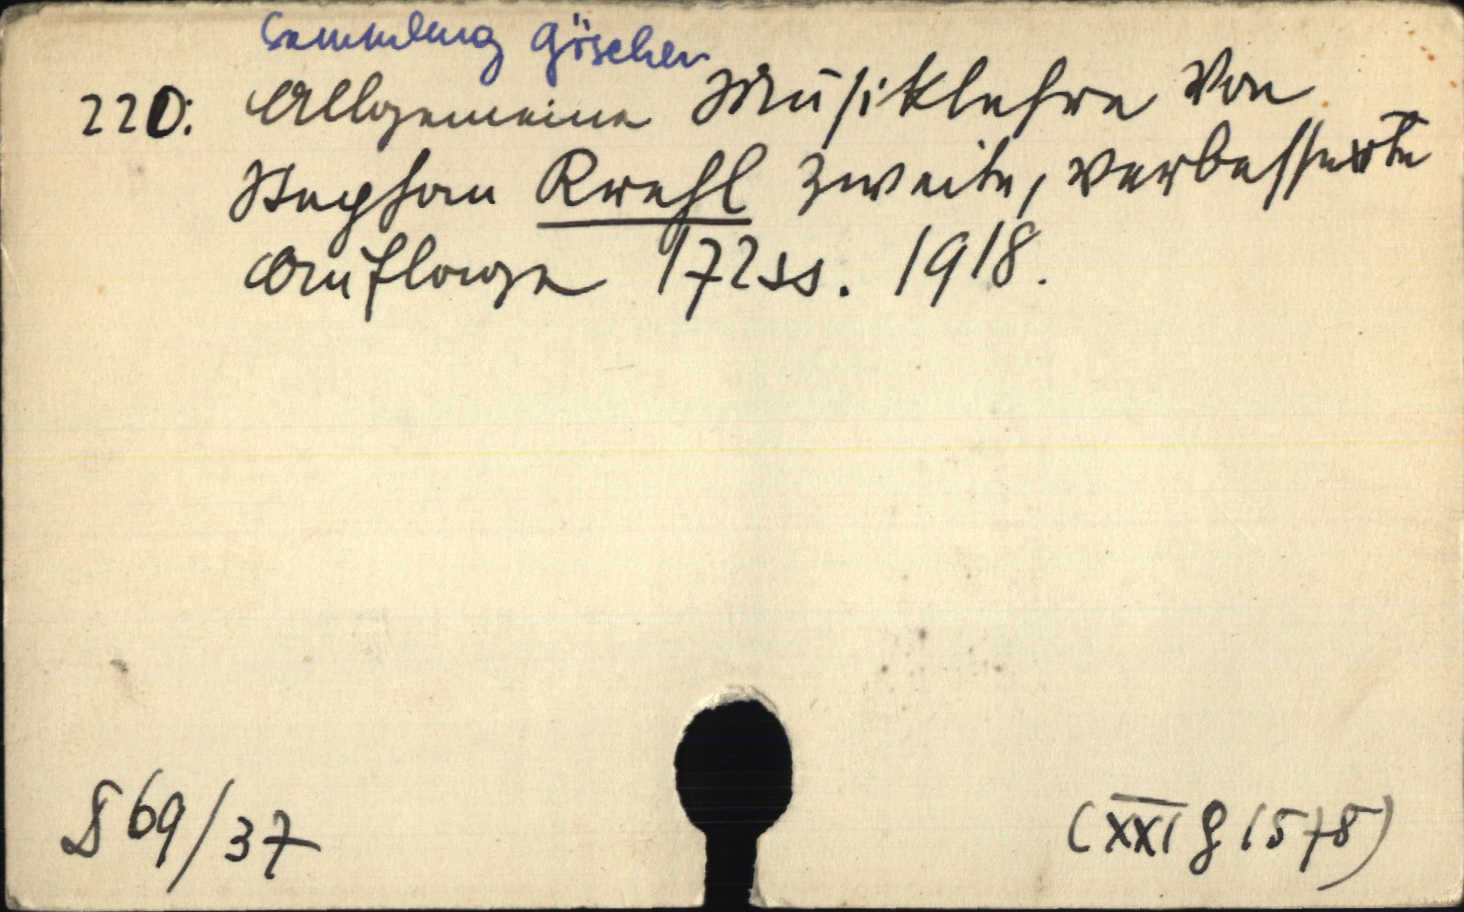 Sammlung Göschen
220: Allgemeine Musiklehre von
Stephan Krehl zweite, verbesserte
Auflage 172ss. 1918.
S 69/37
(XXI g 1578)